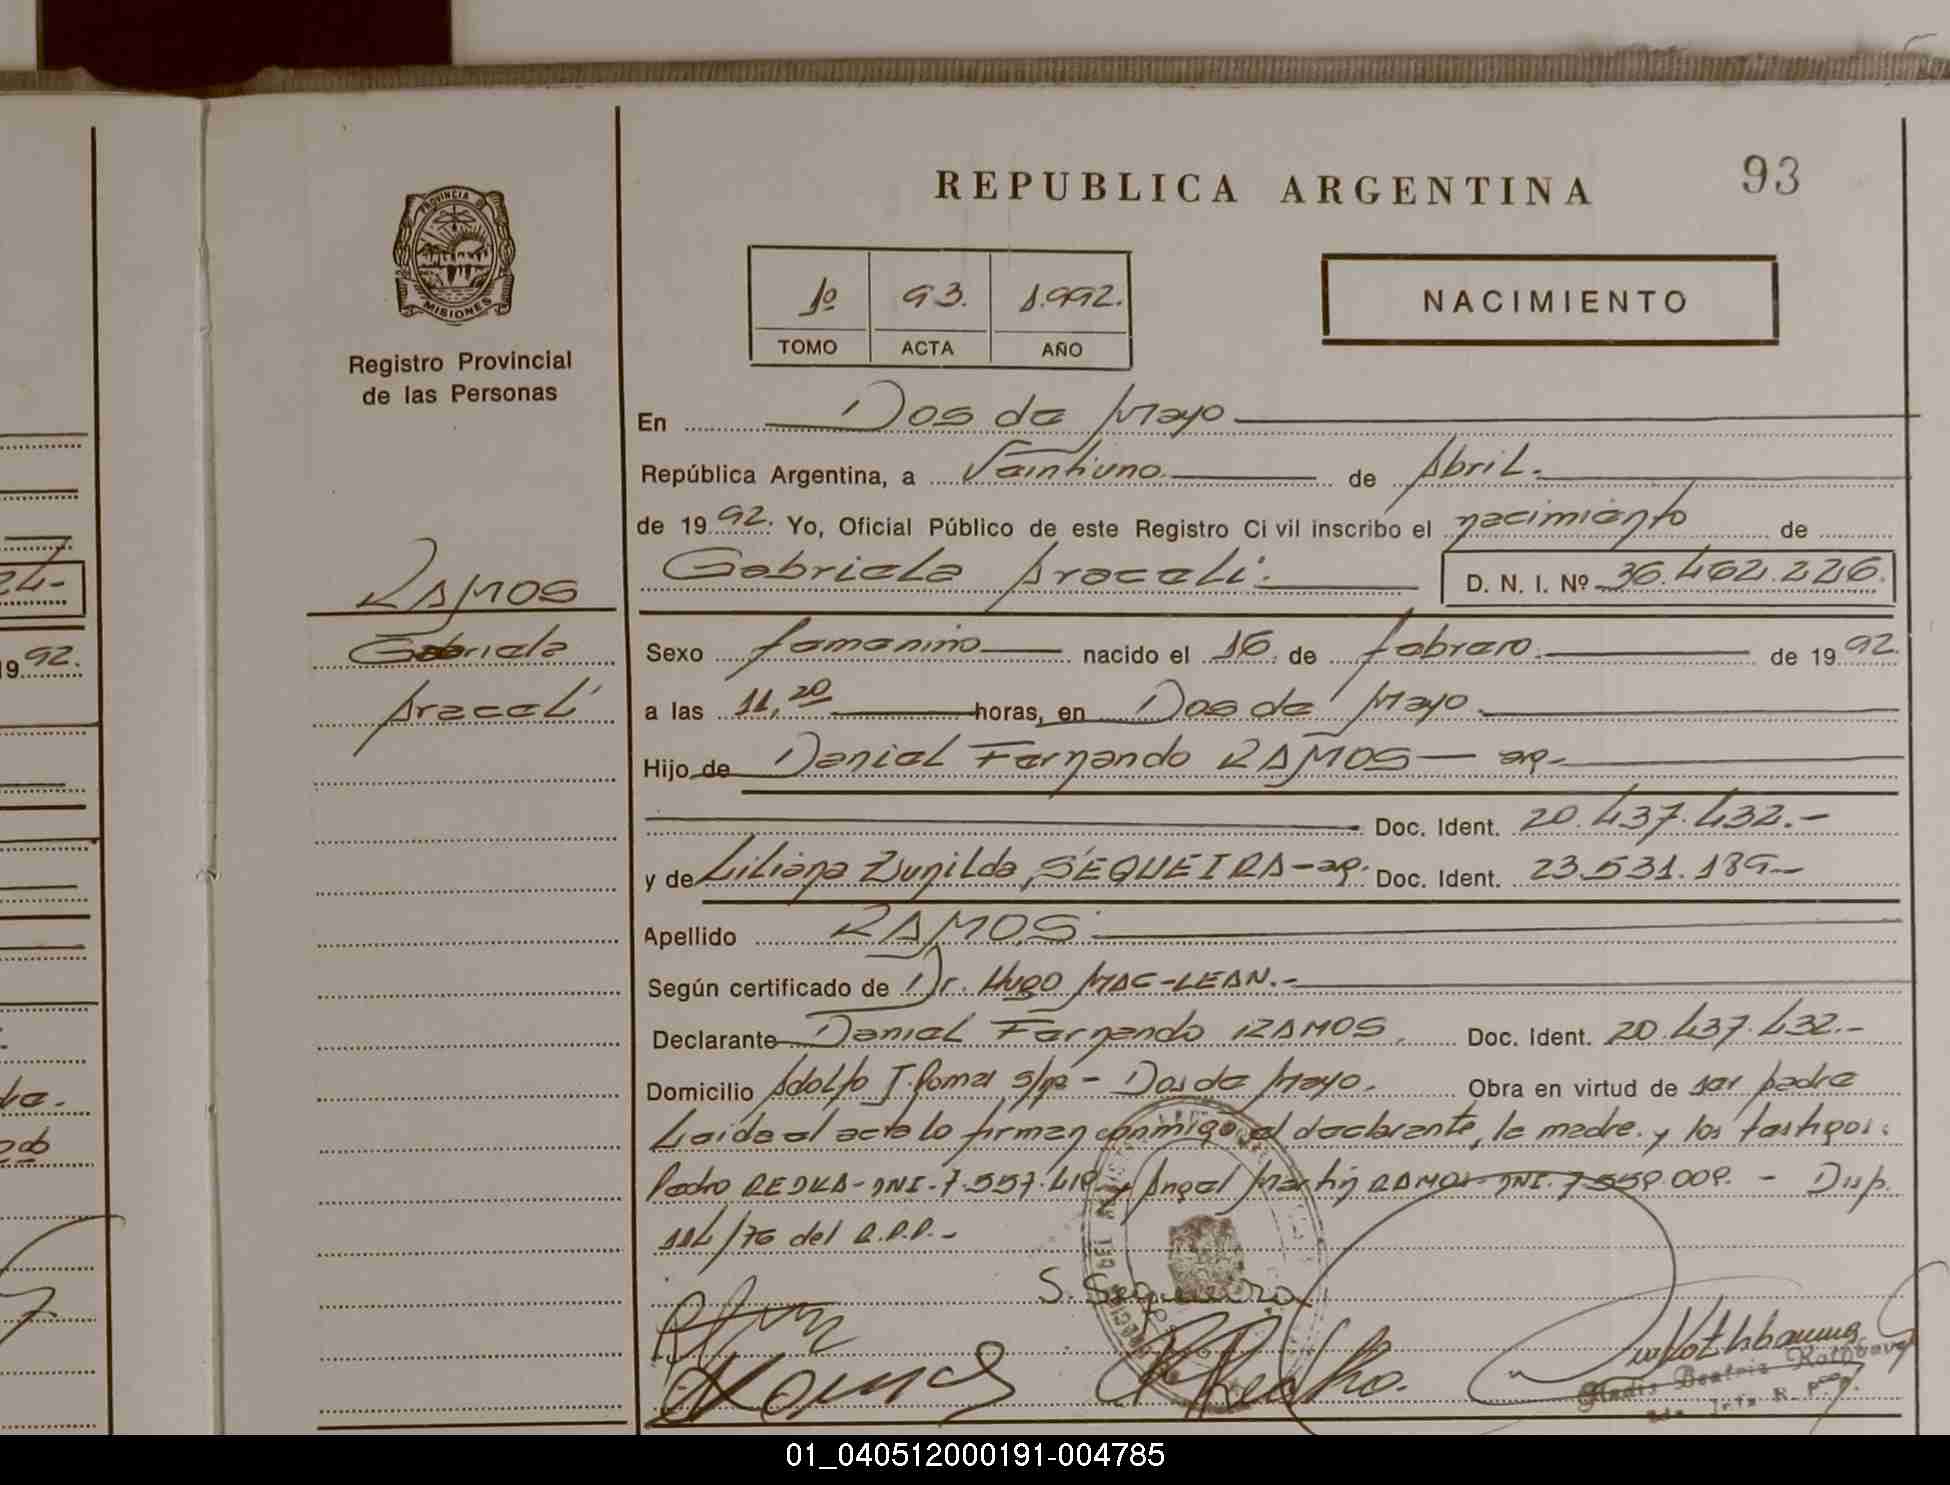 93
REPUBLICA ARGENTINA
PROVINCIA DE
MISIONES
Registro Provincial
de las Personas
1º 93. 1.992.
TOMO ACTA AÑO
NACIMIENTO
En Dos de Mayo
República Argentina, a Veintiuno de Abril.
de 1992. Yo, Oficial Público de este Registro Civil inscribo el nacimiento de
Gabriela Araceli. D. N. I. Nº 36.462.226.
RAMOS
Gabriela
Araceli
Sexo femenino nacido el 16. de febrero. de 1992.
a las 11,20 horas, en Dos de Mayo.
Hijo de Daniel Fernando RAMOS — ar.-
Doc. Ident. 20.437.432.-
y de Liliana Zunilda SEQUEIRA-ar. Doc. Ident. 23.531.189-
Apellido RAMOS
Según certificado de Dr. Hugo MAC-LEAN.-
Declarante Daniel Fernando RAMOS. Doc. Ident. 20.437.432.-
Domicilio Adolfo J. Pomar s/nº - Dos de Mayo. Obra en virtud de ser padre
Leida el acta lo firman conmigo el declarante, la madre y los testigos:
Pedro DNI. 7.557.419 y Angel Martin RAMOS DNI. 7.559.009. - Disp.
114/76 del R.P.P.-
S. Sequeira
Ramos
Rothbauer
Gladis Beatriz
1992.
01_040512000191-004785